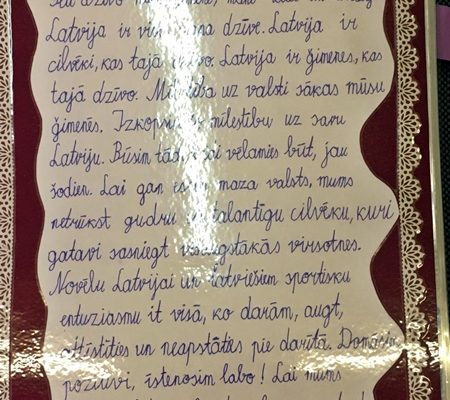 Latvija ir visa mana dzīve. Latvija ir
cilvēki, kas tajā dzīvo. Latvija ir ģimenes, kas
tajā dzīvo. Mīlestība uz valsti sākas mūsu
ģimenēs. Izkopsim mīlestību uz savu
Latviju. Būsim tādi, kādi vēlamies būt, jau
šodien. Lai gan esam maza valsts, mums
netrūkst gudru un talantīgu cilvēku, kuri
gatavi sasniegt visaugstākās virsotnes.
Novēlu Latvijai un latviešiem sportisku
entuziasmu it visā, ko darām, augt,
attīstīties un neapstāties pie darītā. Domāsim
pozitīvi, īstenosim labo! Lai mums